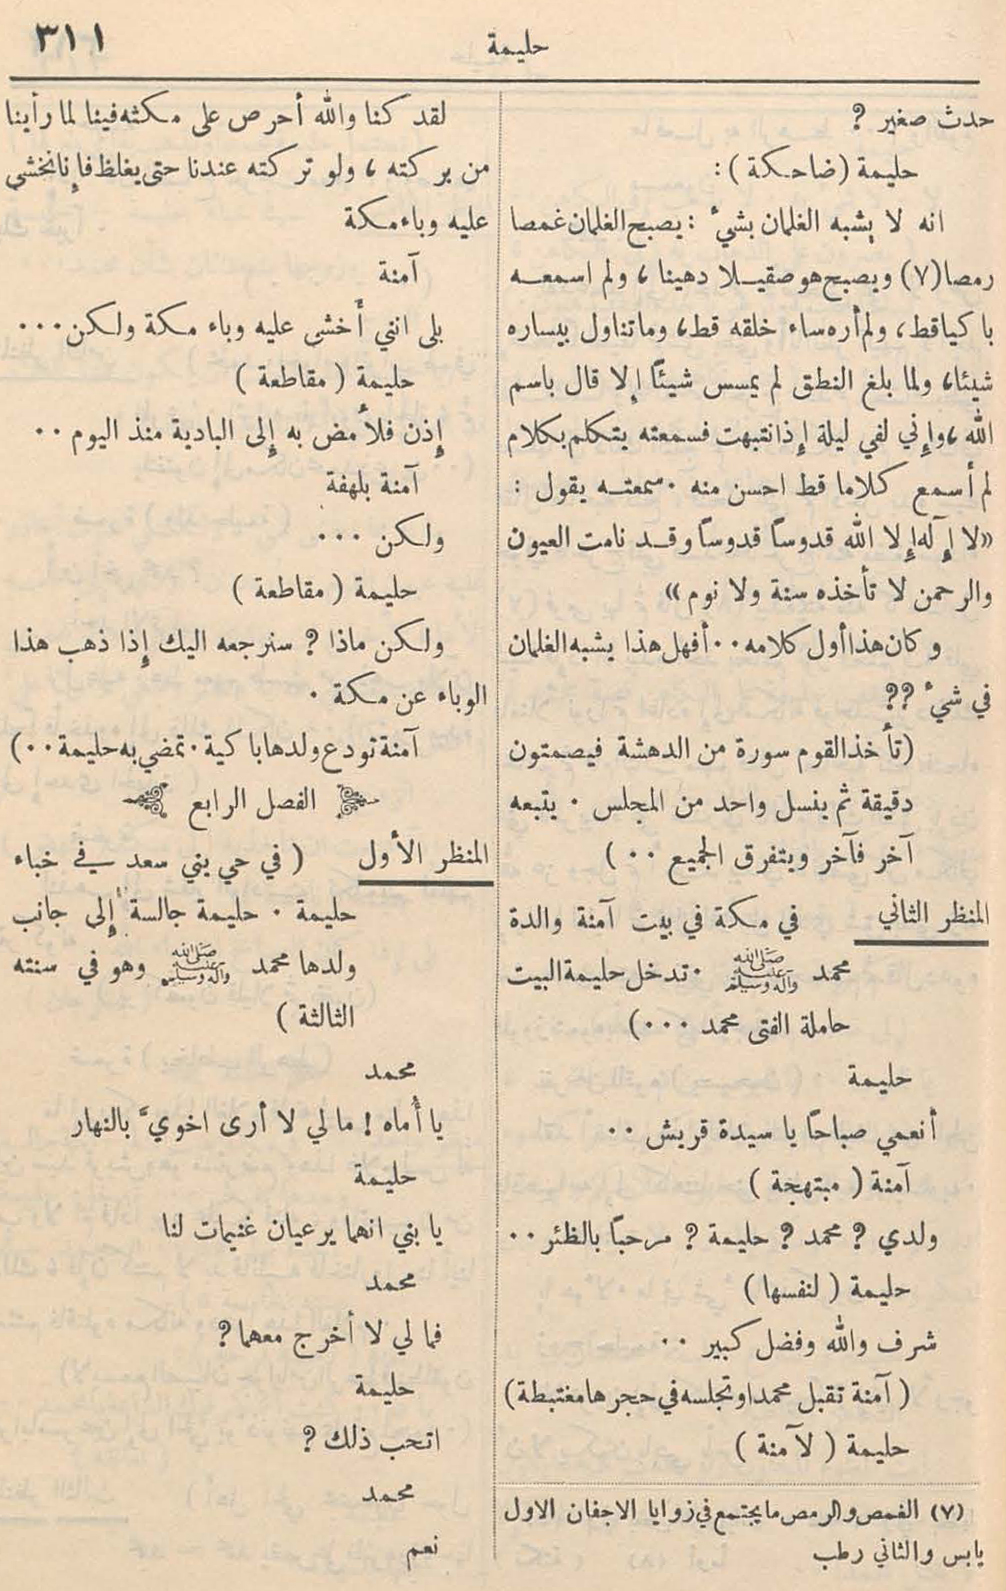 حليمة
٣١١
حدث صغير ?
حليمة (ضاحكة) :
انه لا يشبه الغلمان بشيءٍ : يصبح الغلمان غمصا
رمصا (٧) ويصبح هو صقيلا دهينا ، ولم اسمعه
باكيا قط ، ولم أره ساء خلقه قط ، وما تناول بيساره
شيئا ، ولما بلغ النطق لم يمسس شيئاً إلا قال باسم
الله ، وإني لفي ليلة إذ انتبهت فسمعته يتكلم بكلام
لم أسمع كلاما قط احسن منه . سمعته يقول :
«لا إِلَه إلا الله قدوساً قدوساً وقد نامت العيون
والرحمن لا تأخذه سنة ولا نوم»
وكان هذا أول كلامه .. أفهل هذا يشبه الغلمان
في شيءٍ ??
(تأخذ القوم سورة من الدهشة فيصمتون
دقيقة ثم ينسل واحد من المجلس . يتبعه
آخر فآخر ويتفرق الجميع .. )
المنظر الثاني في مكة في بيت آمنة والدة
محمد صلى الله عليه وآله وسلم . تدخل حليمة البيت
حاملة الفتى محمد ...)
حليمة
أنعمي صباحاً يا سيدة قريش ..
آمنة ( مبتهجة )
ولدي ? محمد ? حليمة ? مرحباً بالظئر ..
حليمة ( لنفسها )
شرف والله وفضل كبير ..
( آمنة تقبل محمدا وتجلسه في حجرها مغتبطة)
حليمة ( لآمنة )
(٧) الغمص والرمص ما يجتمع في زوايا الاجفان الاول
يابس والثاني رطب
لقد كنا والله أحرص على مكثه فينا لما رأينا
من بركته ، ولو تركته عندنا حتى يغلظ فإننا نخشى
عليه وباء مكة
آمنة
بلى انني أخشى عليه وباء مكة ولكن ...
حليمة ( مقاطعة )
إذن فلأمض به إلى البادية منذ اليوم ..
آمنة بلهفة
ولكن ...
حليمة ( مقاطعة )
ولكن ماذا ? سنرجعه اليك إذا ذهب هذا
الوباء عن مكة .
آمنة تودع ولدها باكية . تمضي به حليمة ..)
الفصل الرابع
المنظر الأول ( في حي بني سعد في خباء
حليمة . حليمة جالسة إلى جانب
ولدها محمد صلى الله عليه وآله وسلم وهو في سنته
الثالثة )
محمد
يا أُماه ! ما لي لا أرى اخويَّ بالنهار
حليمة
يا بني انهما يرعيان غنيمات لنا
محمد
فما لي لا أخرج معهما ?
حليمة
اتحب ذلك ?
محمد
نعم